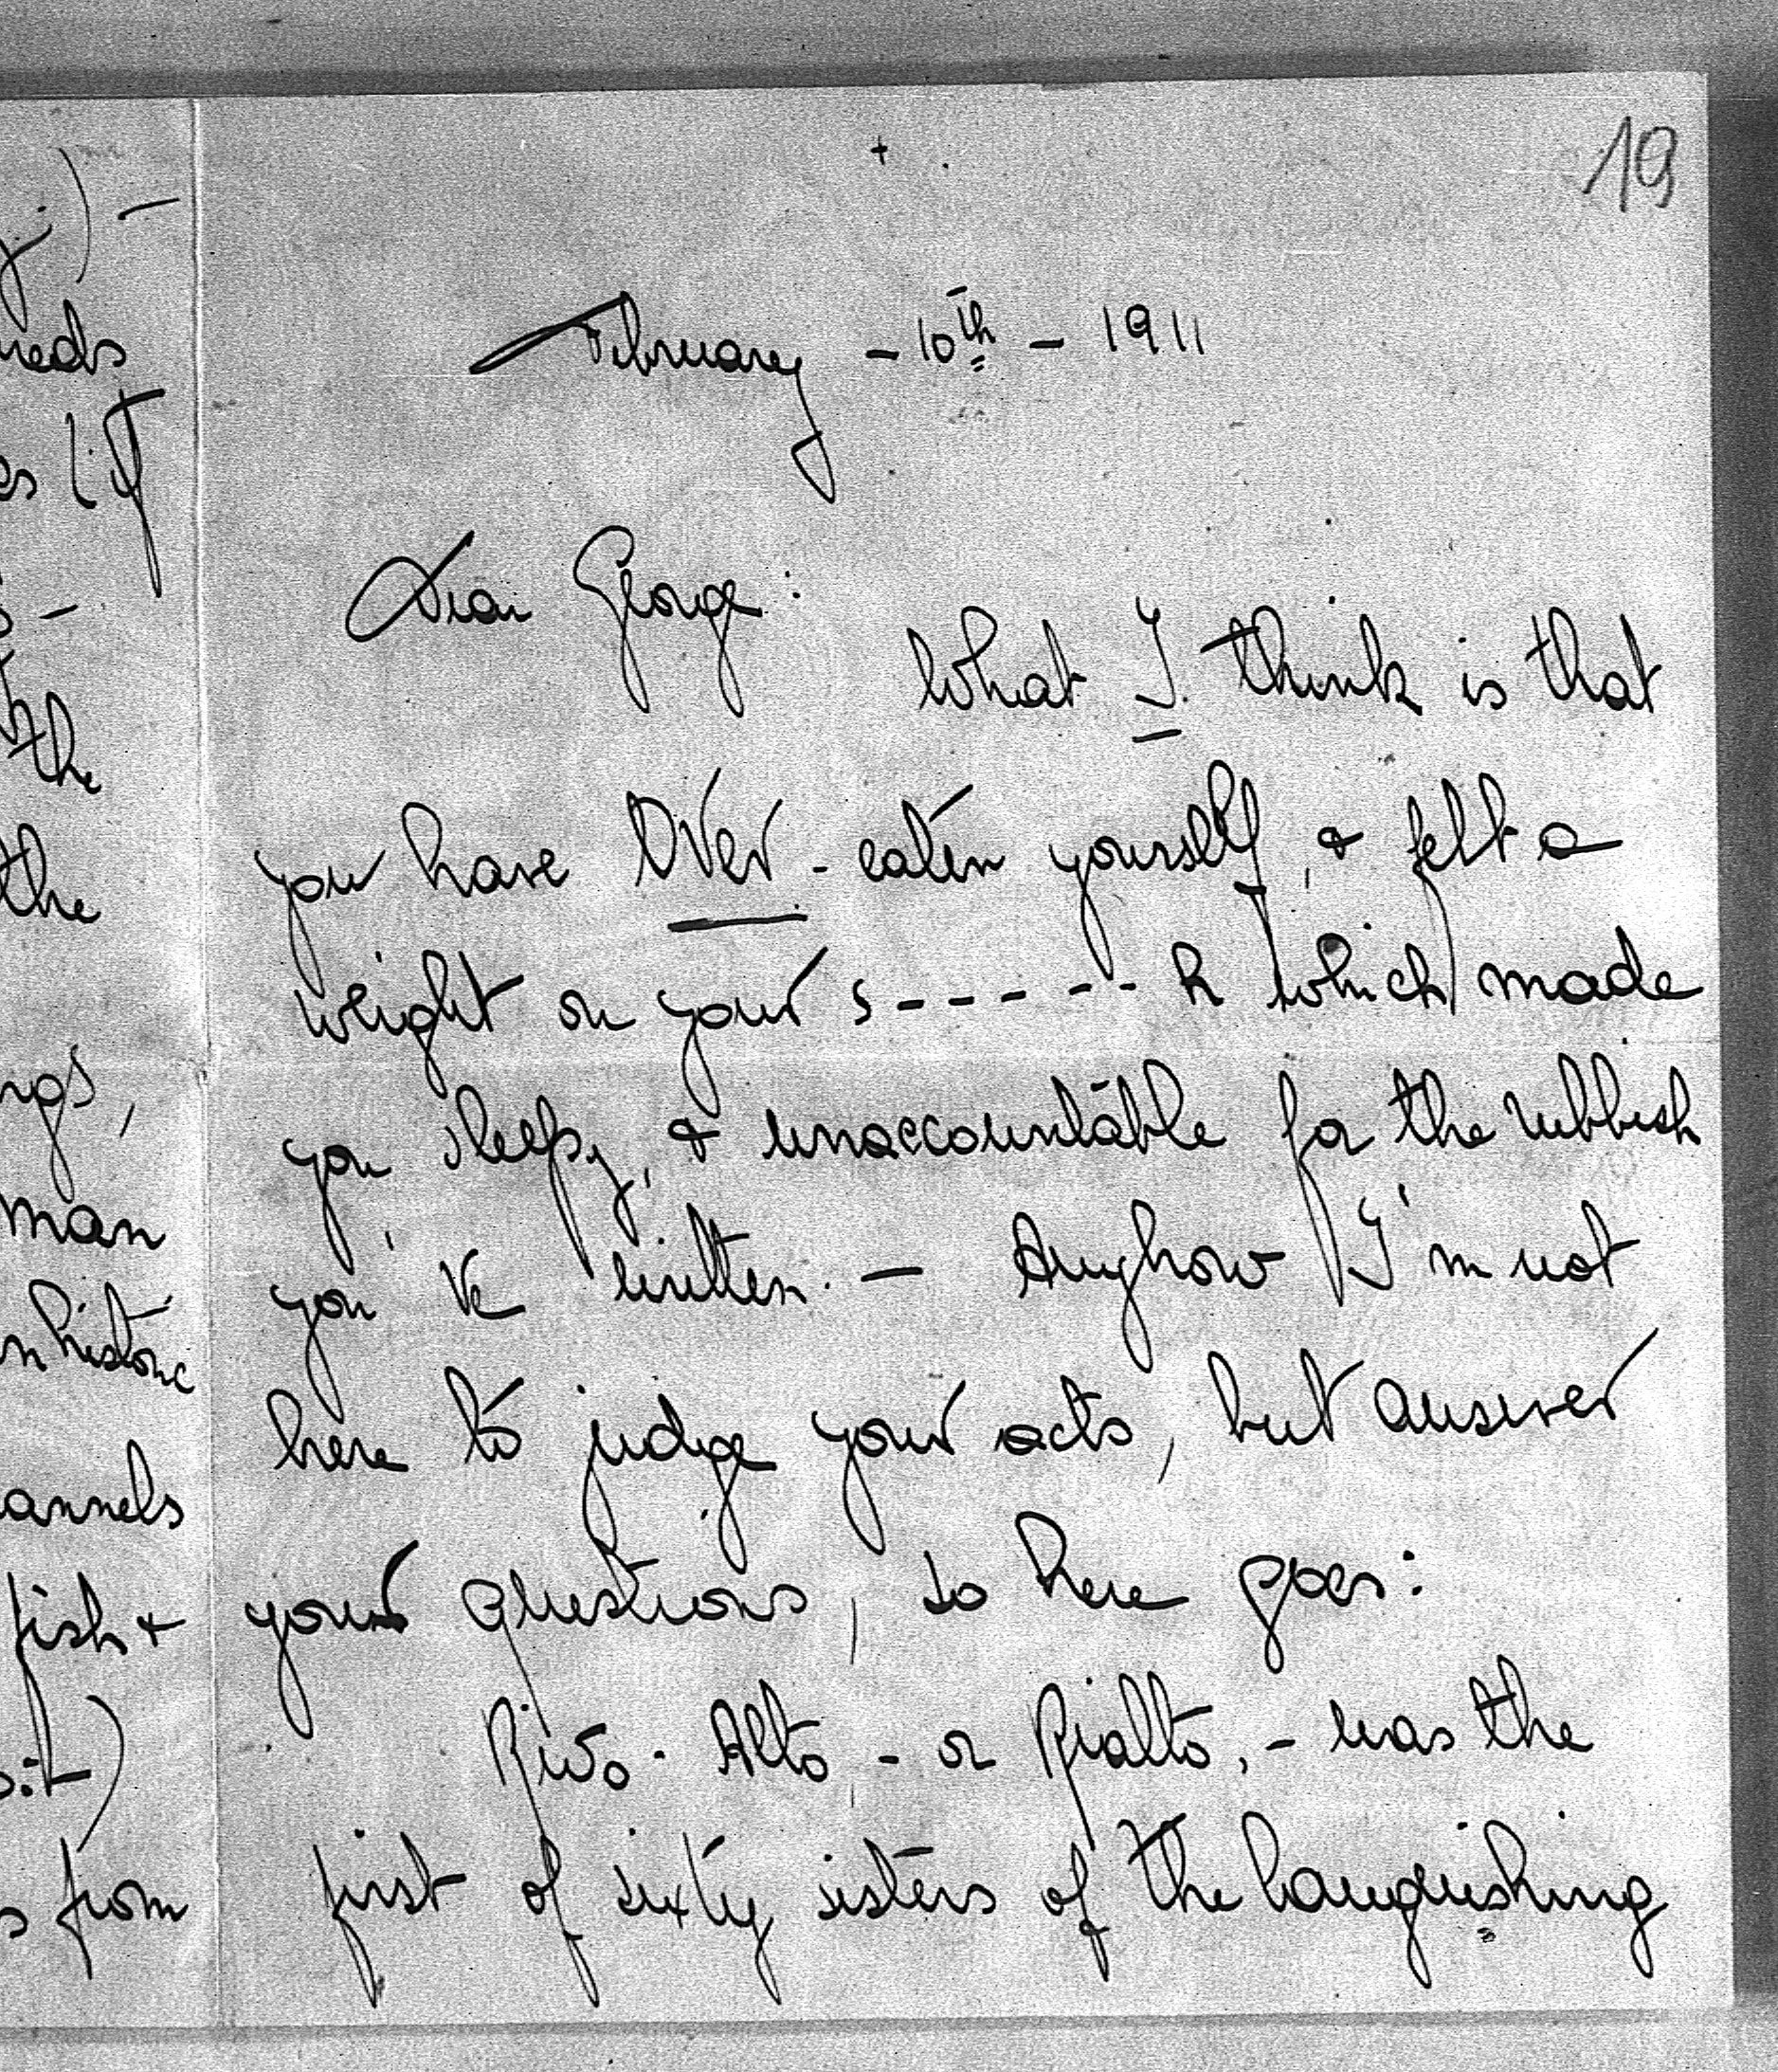 19
February - 10th - 1911
Dear George:
What I think is that
you have over-eaten yourself, & felt a
weight on your s------h which made
you sleepy, & unaccountable for the rubbish
you've written. - Anyhow I'm not
here to judge your acts, but answer
your questions, so here goes:
Rivo-Alto - or Rialto, - was the
first of sixty sisters of the languishing
neds
es (if
the
the
ngs,
man
historic
annels
fish &
from